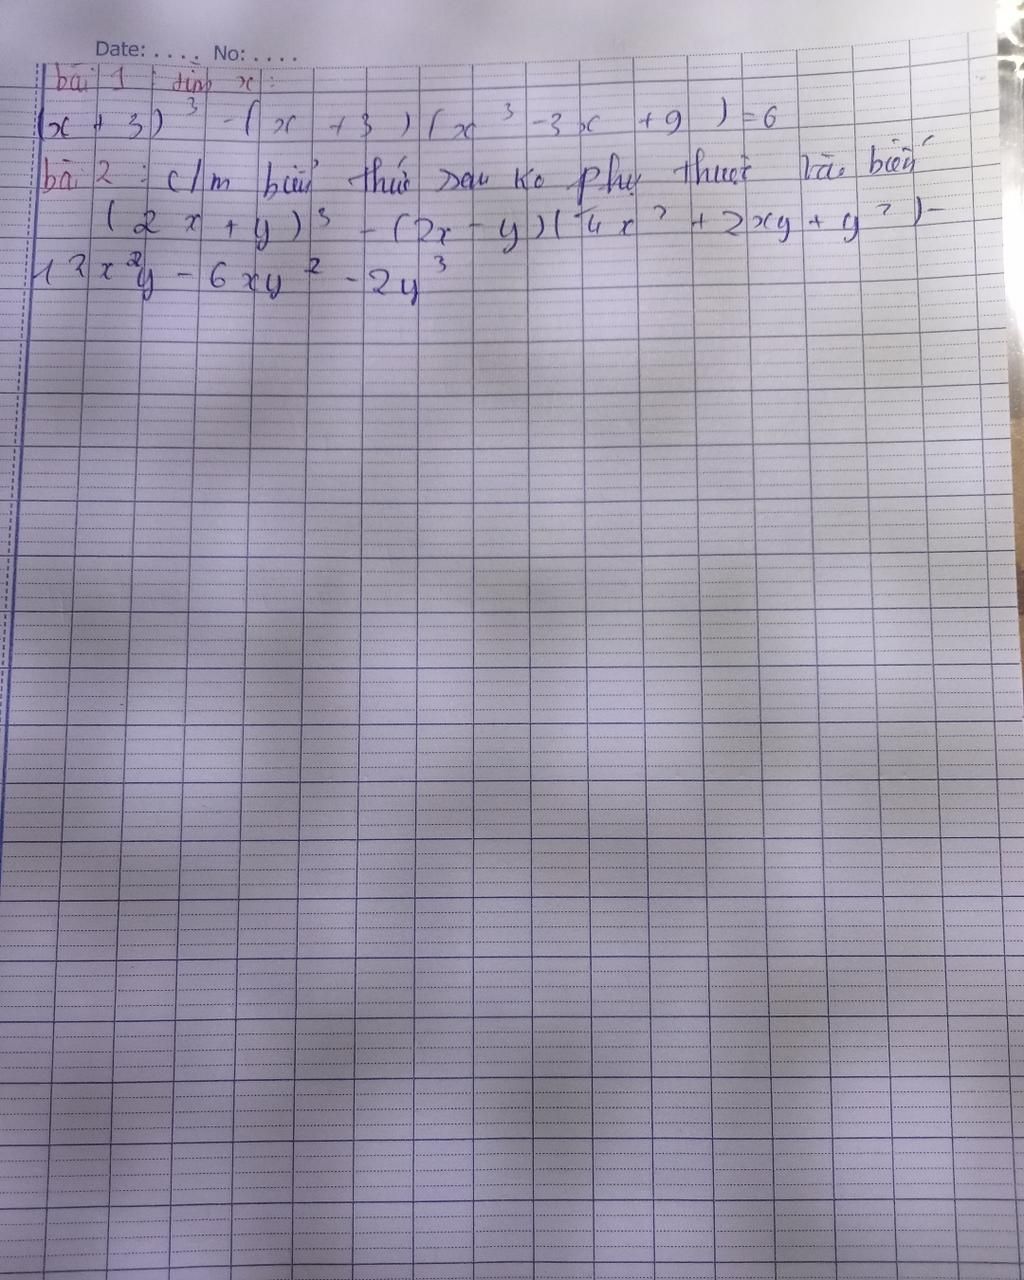 Date: . . . . . No: . . . .
bài 1 : tìm x :
(x + 3)³ - (x + 3)(x³ - 3x + 9) = 6
bài 2 : c/m biểu thức sau ko phụ thuộc vào biến
(2x + y)³ - (2x - y)(4x² + 2xy + y²) -
12x²y - 6xy² - 2y³